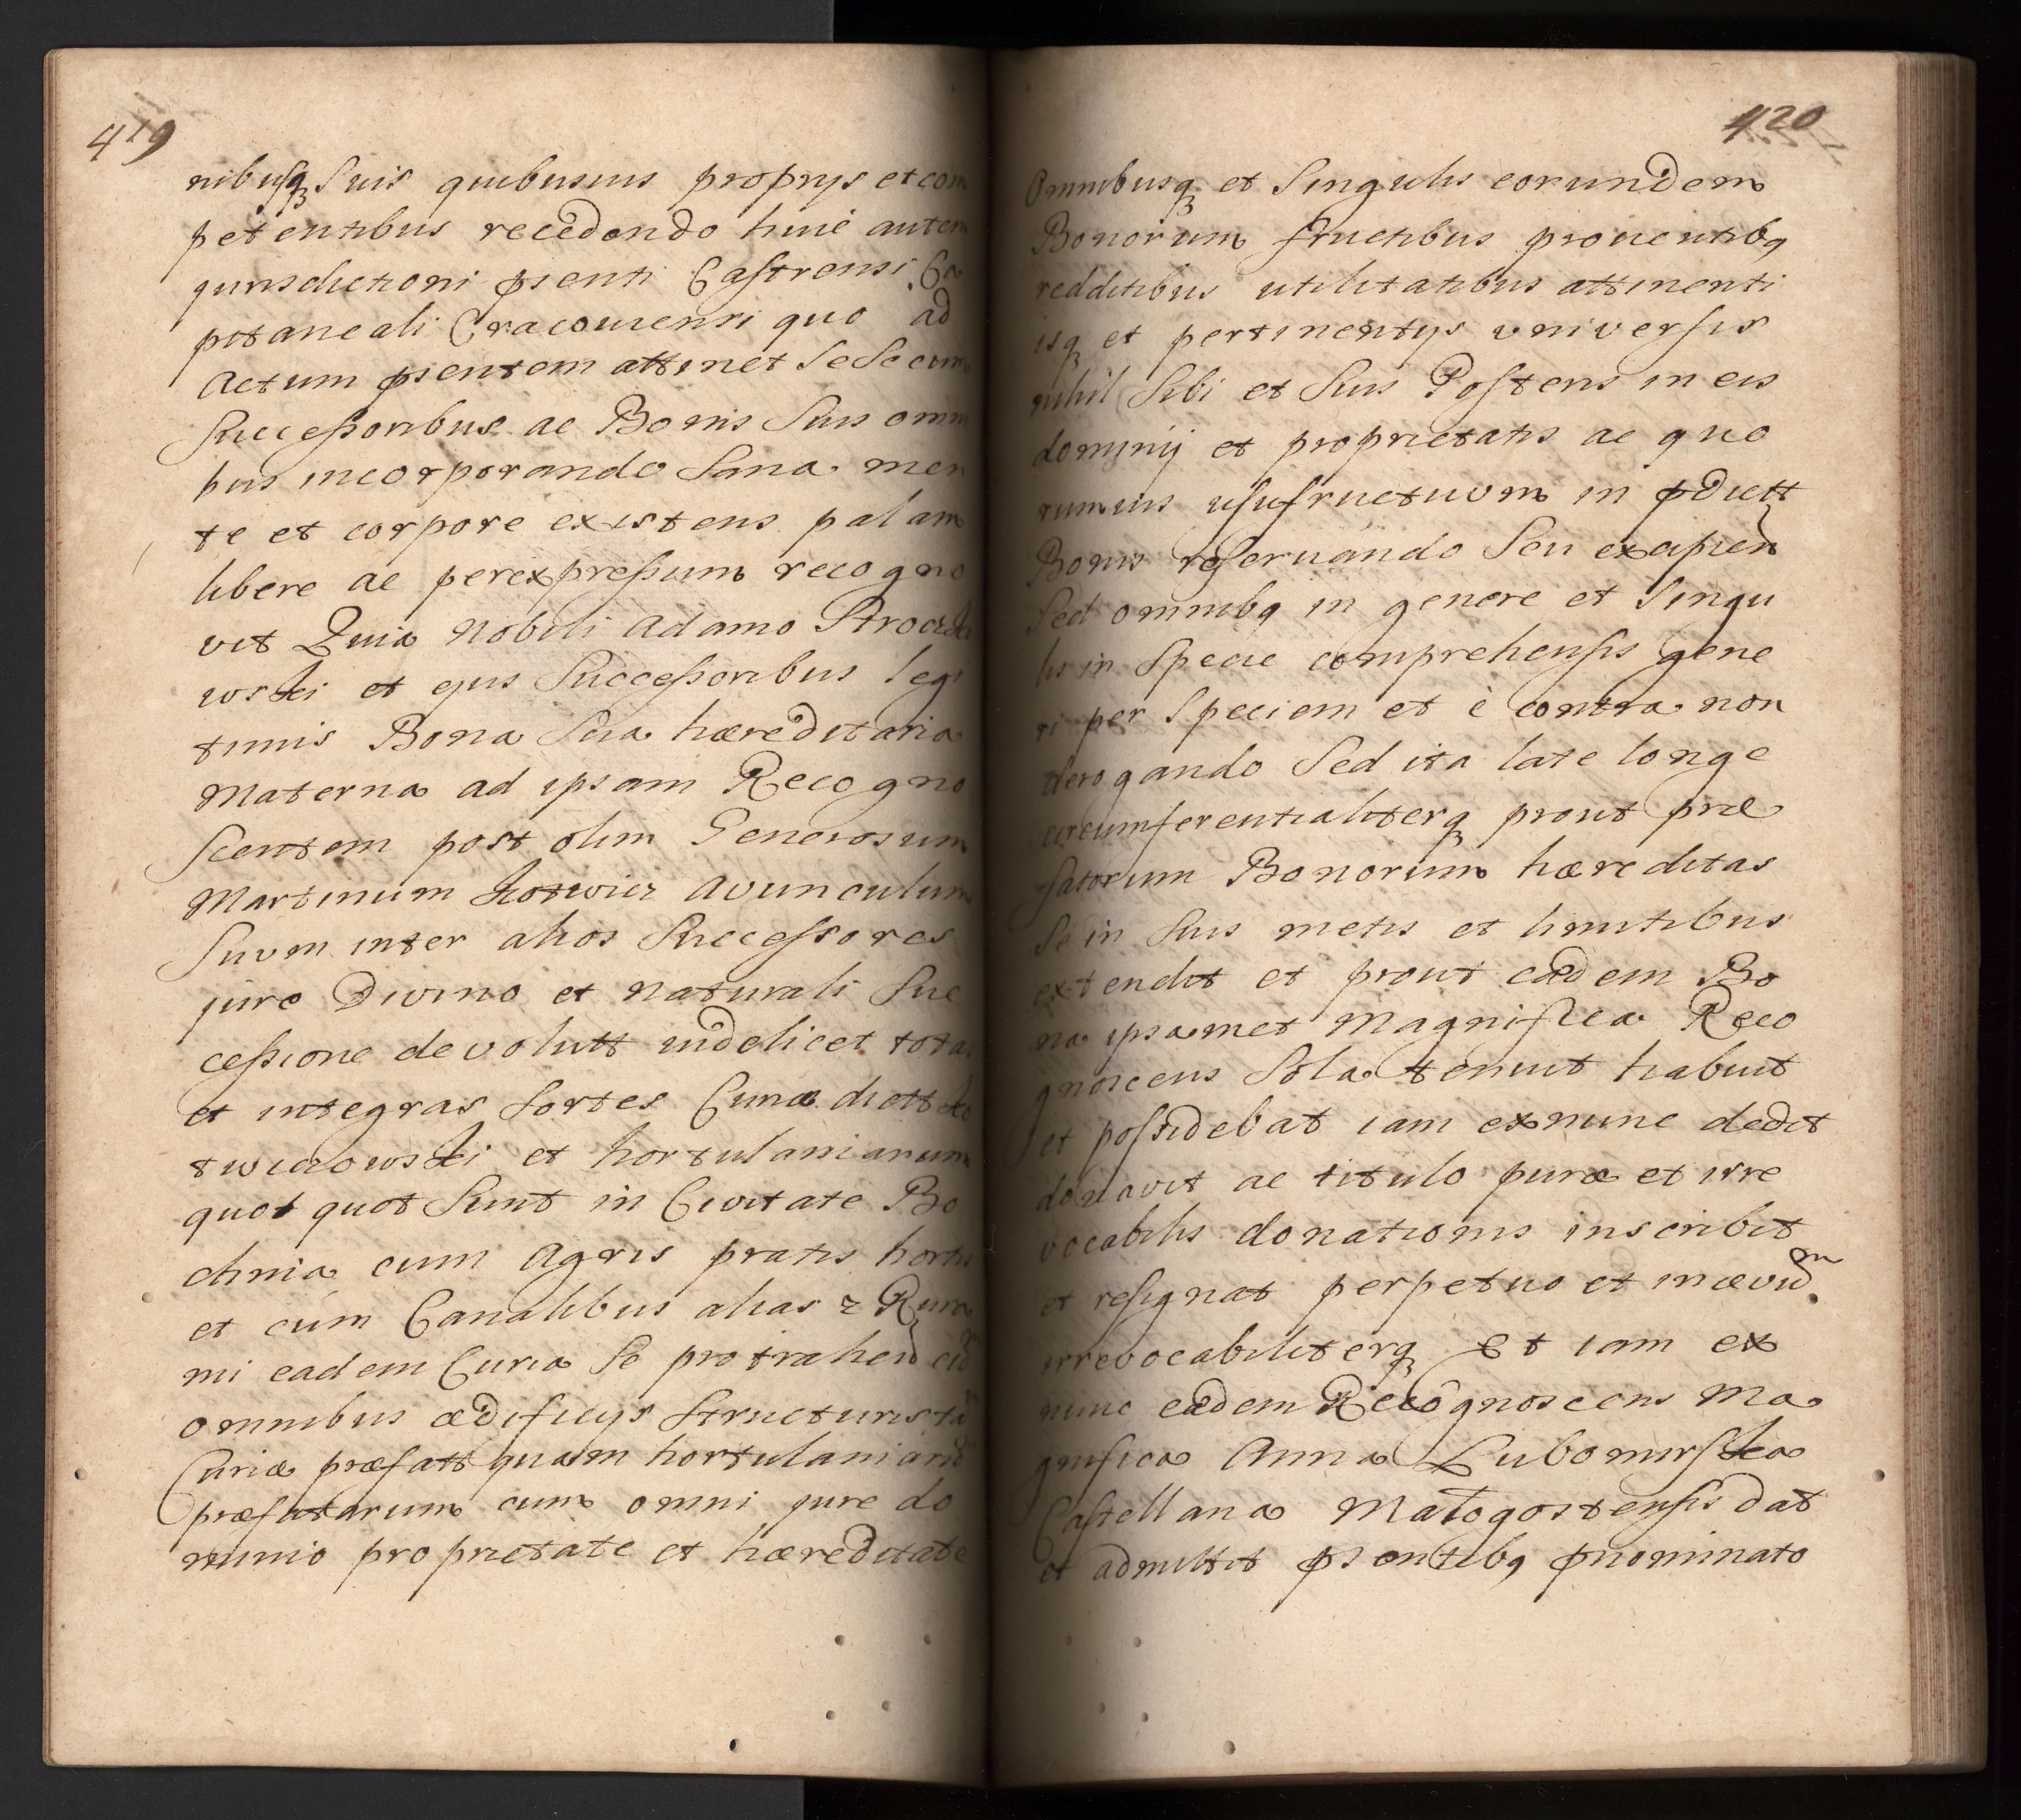 419
nibusq₃ Suis quibusuis proprys et com
petentibus recedendo huic autem
jurisdictioni pnti Castrensi Ca
pitaneali Cracouiensi quo ad
Actum pntem attinet Se Se cum
Successoribus ac Bonis Suis omni
bus incorporando Sana men
te et corpore existens palam
libere ac per expressum recogno
vit Quia Nobili Adamo
et ejus Successoribus legi
timis Bona Sua hæreditaria
Materna ad ipsam Recogno
scentem post olim Generosum
Martinum avunculum
Suum inter alios Successores
jure Divino et Naturali Suc
cessione devolutt videlicet totas
et integras Sortes Curiæ dictt
et hortulaniarum
quot quot Sunt in Civitate Bo
chnia cum Agris pratis hortis
et cum Canalibus alias z Rura
mi eadem Curia Se protrahen cū
omnibus ædificijs Structuris tā
Curiæ præfatt quam hortulaniarū
præfatarum cum omni jure do
minio proprietate et hæreditate
420
Omnibusq₃ et Singulis eorundem
Bonorum fructibus prouentibq
redditibus utilitatibus attinenti
isq₃ et pertinentys vniversis
nihil Sibi et Suis Posteris in eis
dominij et proprietatis ac quo
rumuis usufructuum in pdictt
Bonis reseruando Seu excipien
Sed omnibq in genere et Singu
lis in Specie comprehensis gene
ri per Speciem et è contra non
derogando Sed ita late longe
circumferentialiterq₃ prout præ
fatorum Bonorum hæreditas
Se in Suis metis et limitibus
extendit et prout eadem Bo
na ipsamet Magnifica Reco
gnoscens Sola tenuit habuit
et possidebat iam ex nunc dedit
donavit ac titulo puræ et irre
vocabilis donationis inscribit
et resignat perpetuo et in ævum
irrevocabiliterq₃ Et iam ex
nunc eadem Recognoscens Ma
gnifica Anna Lubomirska
Castellana Małogostensis dat
et admittit pntibq pnominato